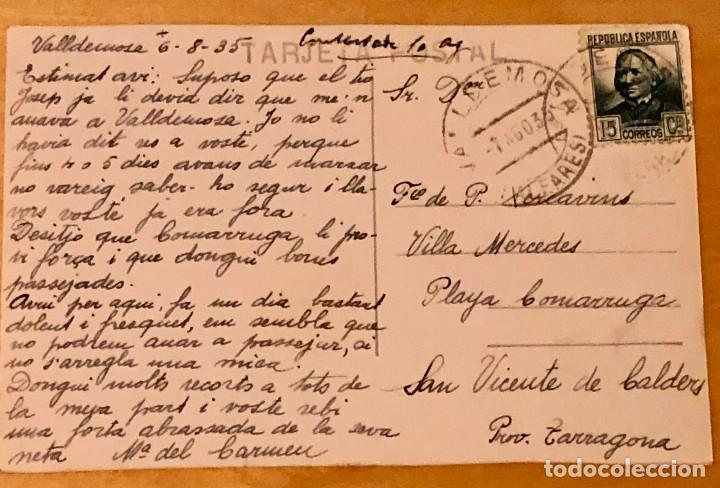 Valldemosa 6-8-35
Contestada 10 ag
TARJETA POSTAL
Estimat avi: Suposo que el tio
Josep ja li devia dir que me'n
anava a Valldemosa. Jo no li
havia dit res a voste, perque
fins 4 o 5 dies avans de marxar
no vareig saber-ho segur i lla-
vors voste ja era fora.
Desitjo que Comarruga li pro-
vi força i que dongui bones
passejades.
Avui per aqui, fa un dia bastant
dolent i fresquet, em sembla que
no podrem anar a passejar, si
no s'arregla una mica.
Dongui molts recorts a tots de
la meva part i voste rebi
una forta abrassada de la seva
neta Mª del Carmen
Sr. Dor
Fco de P.
Villa Mercedes
Playa Comarruga
San Vicente de Calders
Prov. Tarragona
VALLDEMOSA
7 AGO 35
(BALEARES)
REPUBLICA ESPAÑOLA
15 CORREOS Cts
todocoleccion.net